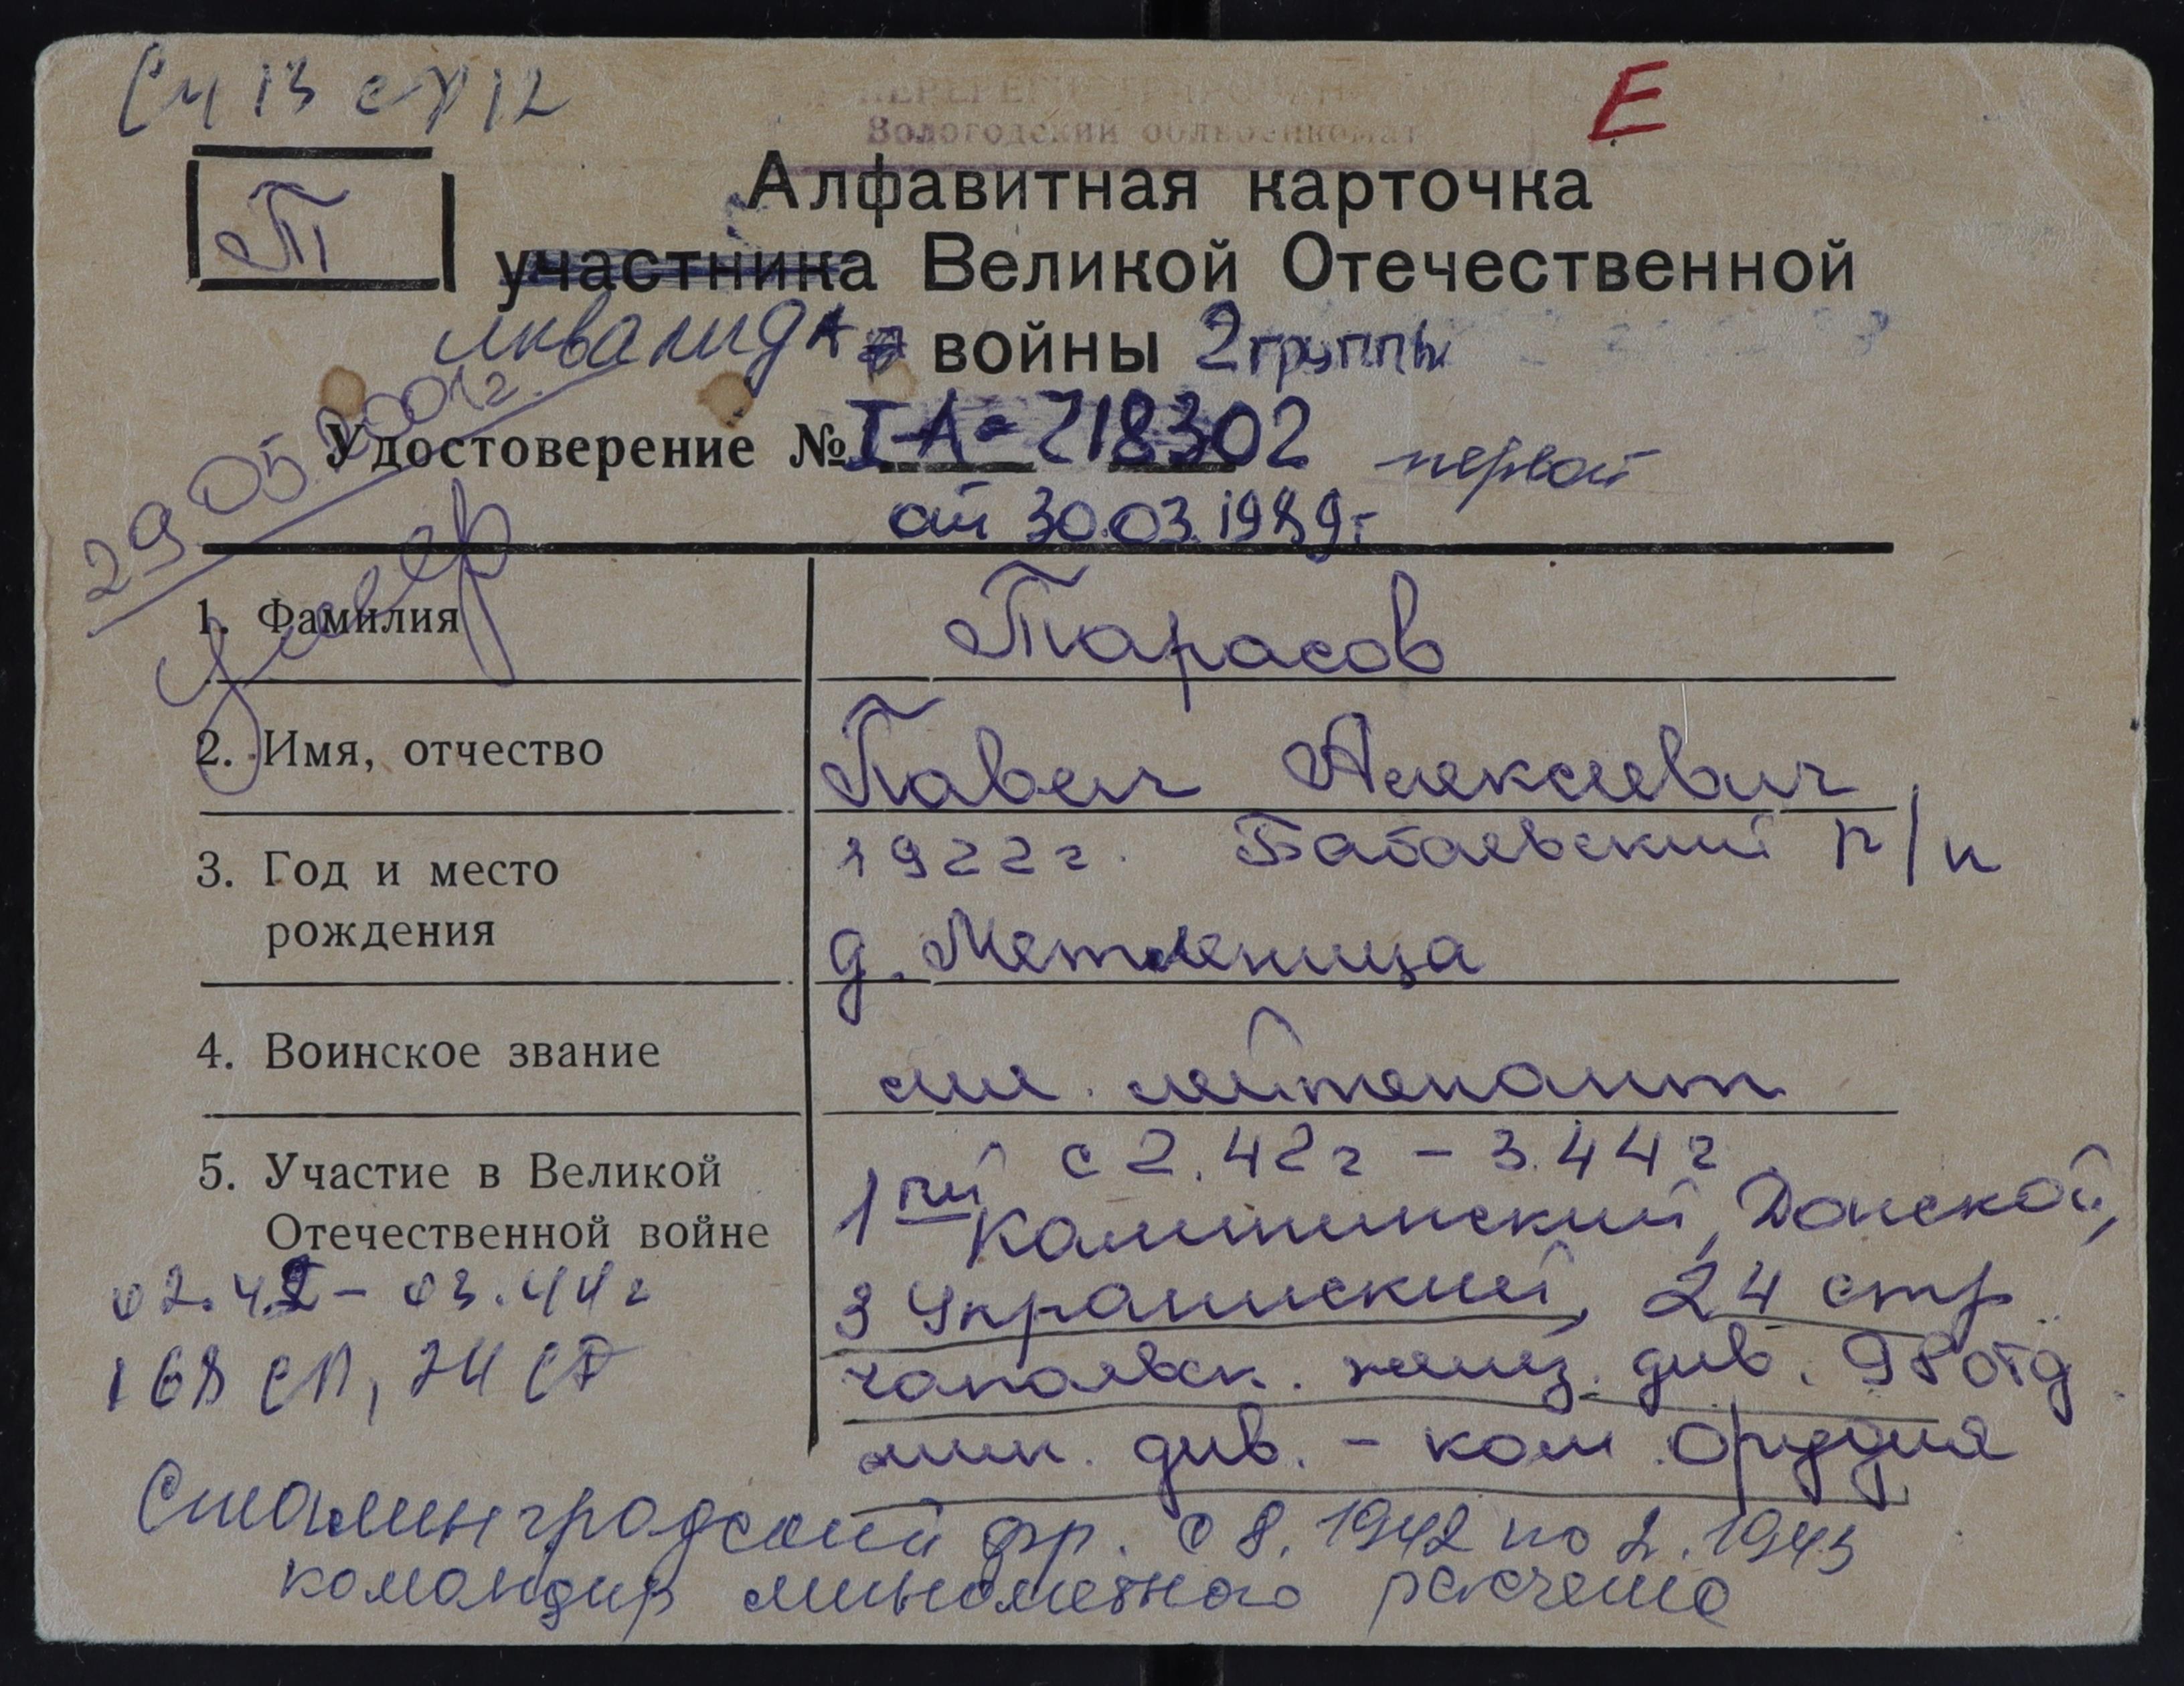 См 13 ст 12
Е
ПЕРЕРЕГИСТРИРОВАН
Вологодский облвоенкомат
Т
Алфавитная карточка
участника Великой Отечественной
инвалида войны 2 группы
Удостоверение № I-А-218302 первой
от 30.03.1989г
29.05.2001г.
Умер
1. Фамилия Тарасов
2. Имя, отчество Павел Алексеевич
3. Год и место 1922г. Бабаевский р/н
рождения д.
4. Воинское звание мл. лейтенант
5. Участие в Великой с 2.42г - 3.44г
Отечественной войне 1ый Калининский, Донской,
02.42 - 03.44г 3 Украинский, 24 стр
168 сп, 24 СД чапаевск. желез. див. 98 отд
мин. див. - ком. орудия
Сталинградский фр. с 8.1942 по 2.1943
командир минометного расчета